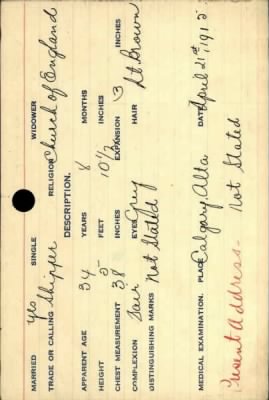 MARRIED Yes SINGLE WIDOWER
TRADE OR CALLING Shipper RELIGION Church of England
DESCRIPTION.
APPARENT AGE 34 YEARS 8 MONTHS
HEIGHT 5 FEET 10 1/2 INCHES
CHEST MEASUREMENT 38 INCHES EXPANSION 3 INCHES
COMPLEXION Fair EYES Grey HAIR Lt. Brown
DISTINGUISHING MARKS Not Stated
MEDICAL EXAMINATION. PLACE Calgary, Alta DATE April 21st, 1915
Present Address - Not Stated